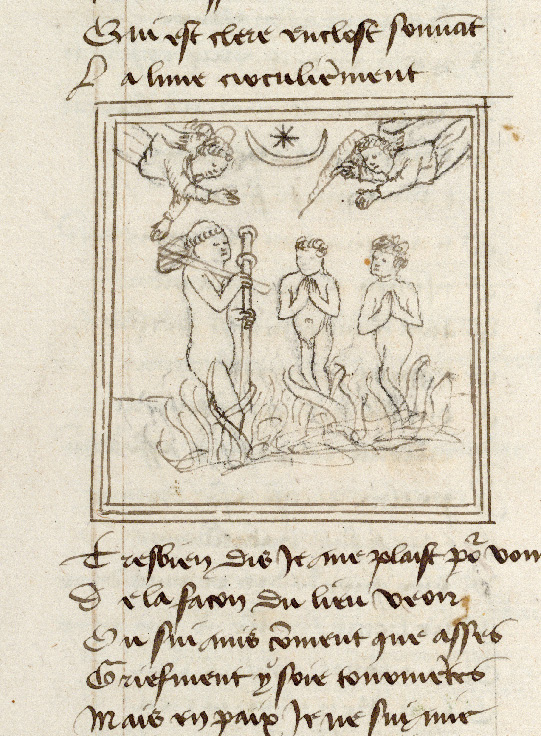 Qui est clere enclost souuāt
La lune circuliērment
Tresbien dis Je me plaist po᷑ voir
De la facon du lieu veoir
Ou sui mis cōment que asses
Griefment y soie tourmētes
Mais en paix Je ne sui mie